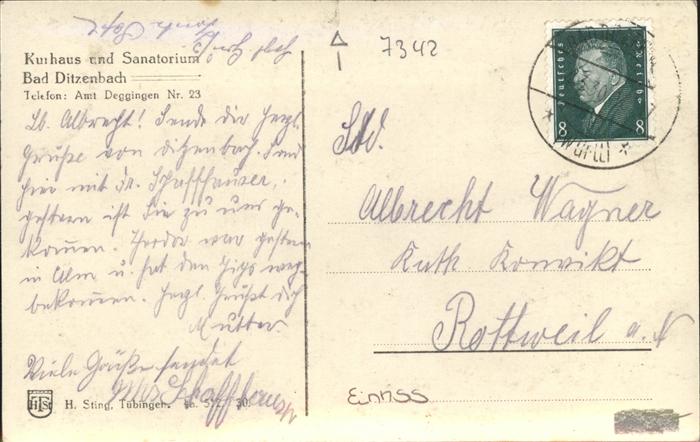 Kurhaus und Sanatorium
Bad Ditzenbach
Telefon: Amt Deggingen Nr. 23
Lb. Albrecht! Sende dir herzl.
Grüße von Ditzenbach. Sind
hier mit Fr. Schaffhauser,
gestern ist sie zu uns ge-
kommen. Theodor war gestern
in Ulm u. hat den Gips weg-
bekommen. Herzl. Grüßt dich
Mutter
Viele Grüße sendet
Schaffhauser
HSt H. Sting, Tübingen.
7342
Deutsches Reich
8 8
Württ
Std.
Albrecht Wagner
Kath Konvikt
Rottweil a. N
EinMSS